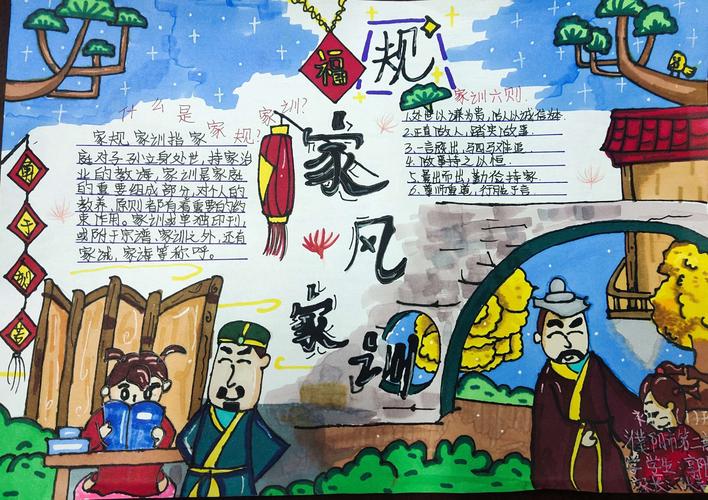 福
规
什么是家规?家训?
家规,家训指家
庭对子孙立身处世,持家治
业的教诲,家训是家庭
的重要组成部分,对个人的
教养,原则都有着重要的约
束作用。家训或单独印刊,
或附于宗谱,家训之外,还有
家诫,家诲等称呼。
家训六则
2.正直做人,踏实做事.
3.一言既出,驷马难追
4.做事持之以恒.
5.量出而出,勤俭持家.
6.尊师重道,行胜于言.
家
风
家
训
濮阳市第二